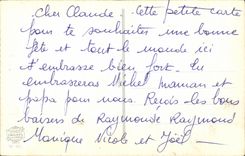 Cher Claude. Cette petite carte
pour te souhaiter une bonne
fête et tout le monde ici
t'embrasse bien fort. Tu
embrasseras Michel maman et
papa pour nous. Reçois les bons
baisers de Raymonde Raymond
Monique Nicole et Joël